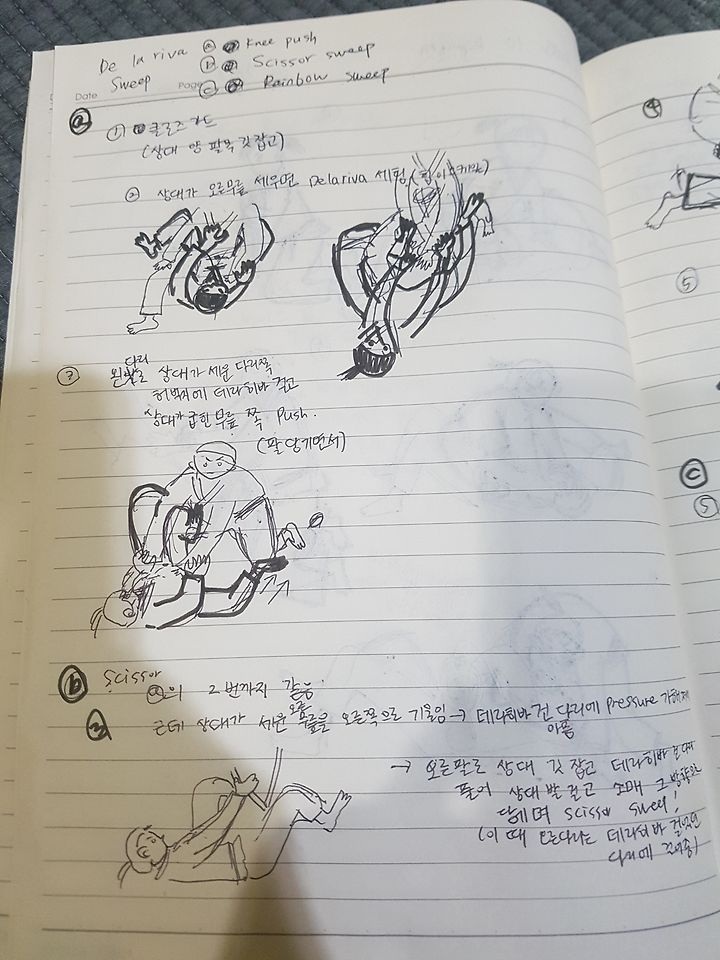 De la riva ⓐ Knee push
Sweep ⓑ Scissor sweep
Date Page ⓒ Rainbow sweep
ⓐ ① 클로즈가드
(상대 양 팔목 깃잡고)
② 상대가 오른무릎 세우면 Delariva 세팅
③ 왼발로 상대가 세운 다리쪽
다리
허벅지에 데라히바 걸고
상대가 굽힌 무릎 쪽 Push.
(팔 당기면서)
ⓑ Scissor
ⓐ의 2번까지 같음
③ 근데 상대가 세운 무릎을 오른쪽으로 기울임 → 데라히바 건 다리에 pressure 가해져
오른
아픔
→ 오른팔로 상대 깃 잡고 데라히바
풀어 상대 발 걸고 소매 그 방향으로
당기며 scissor sweep!
(이 때 오른다리는 데라히바 걸었던
다리에
④
⑤
ⓒ
⑤